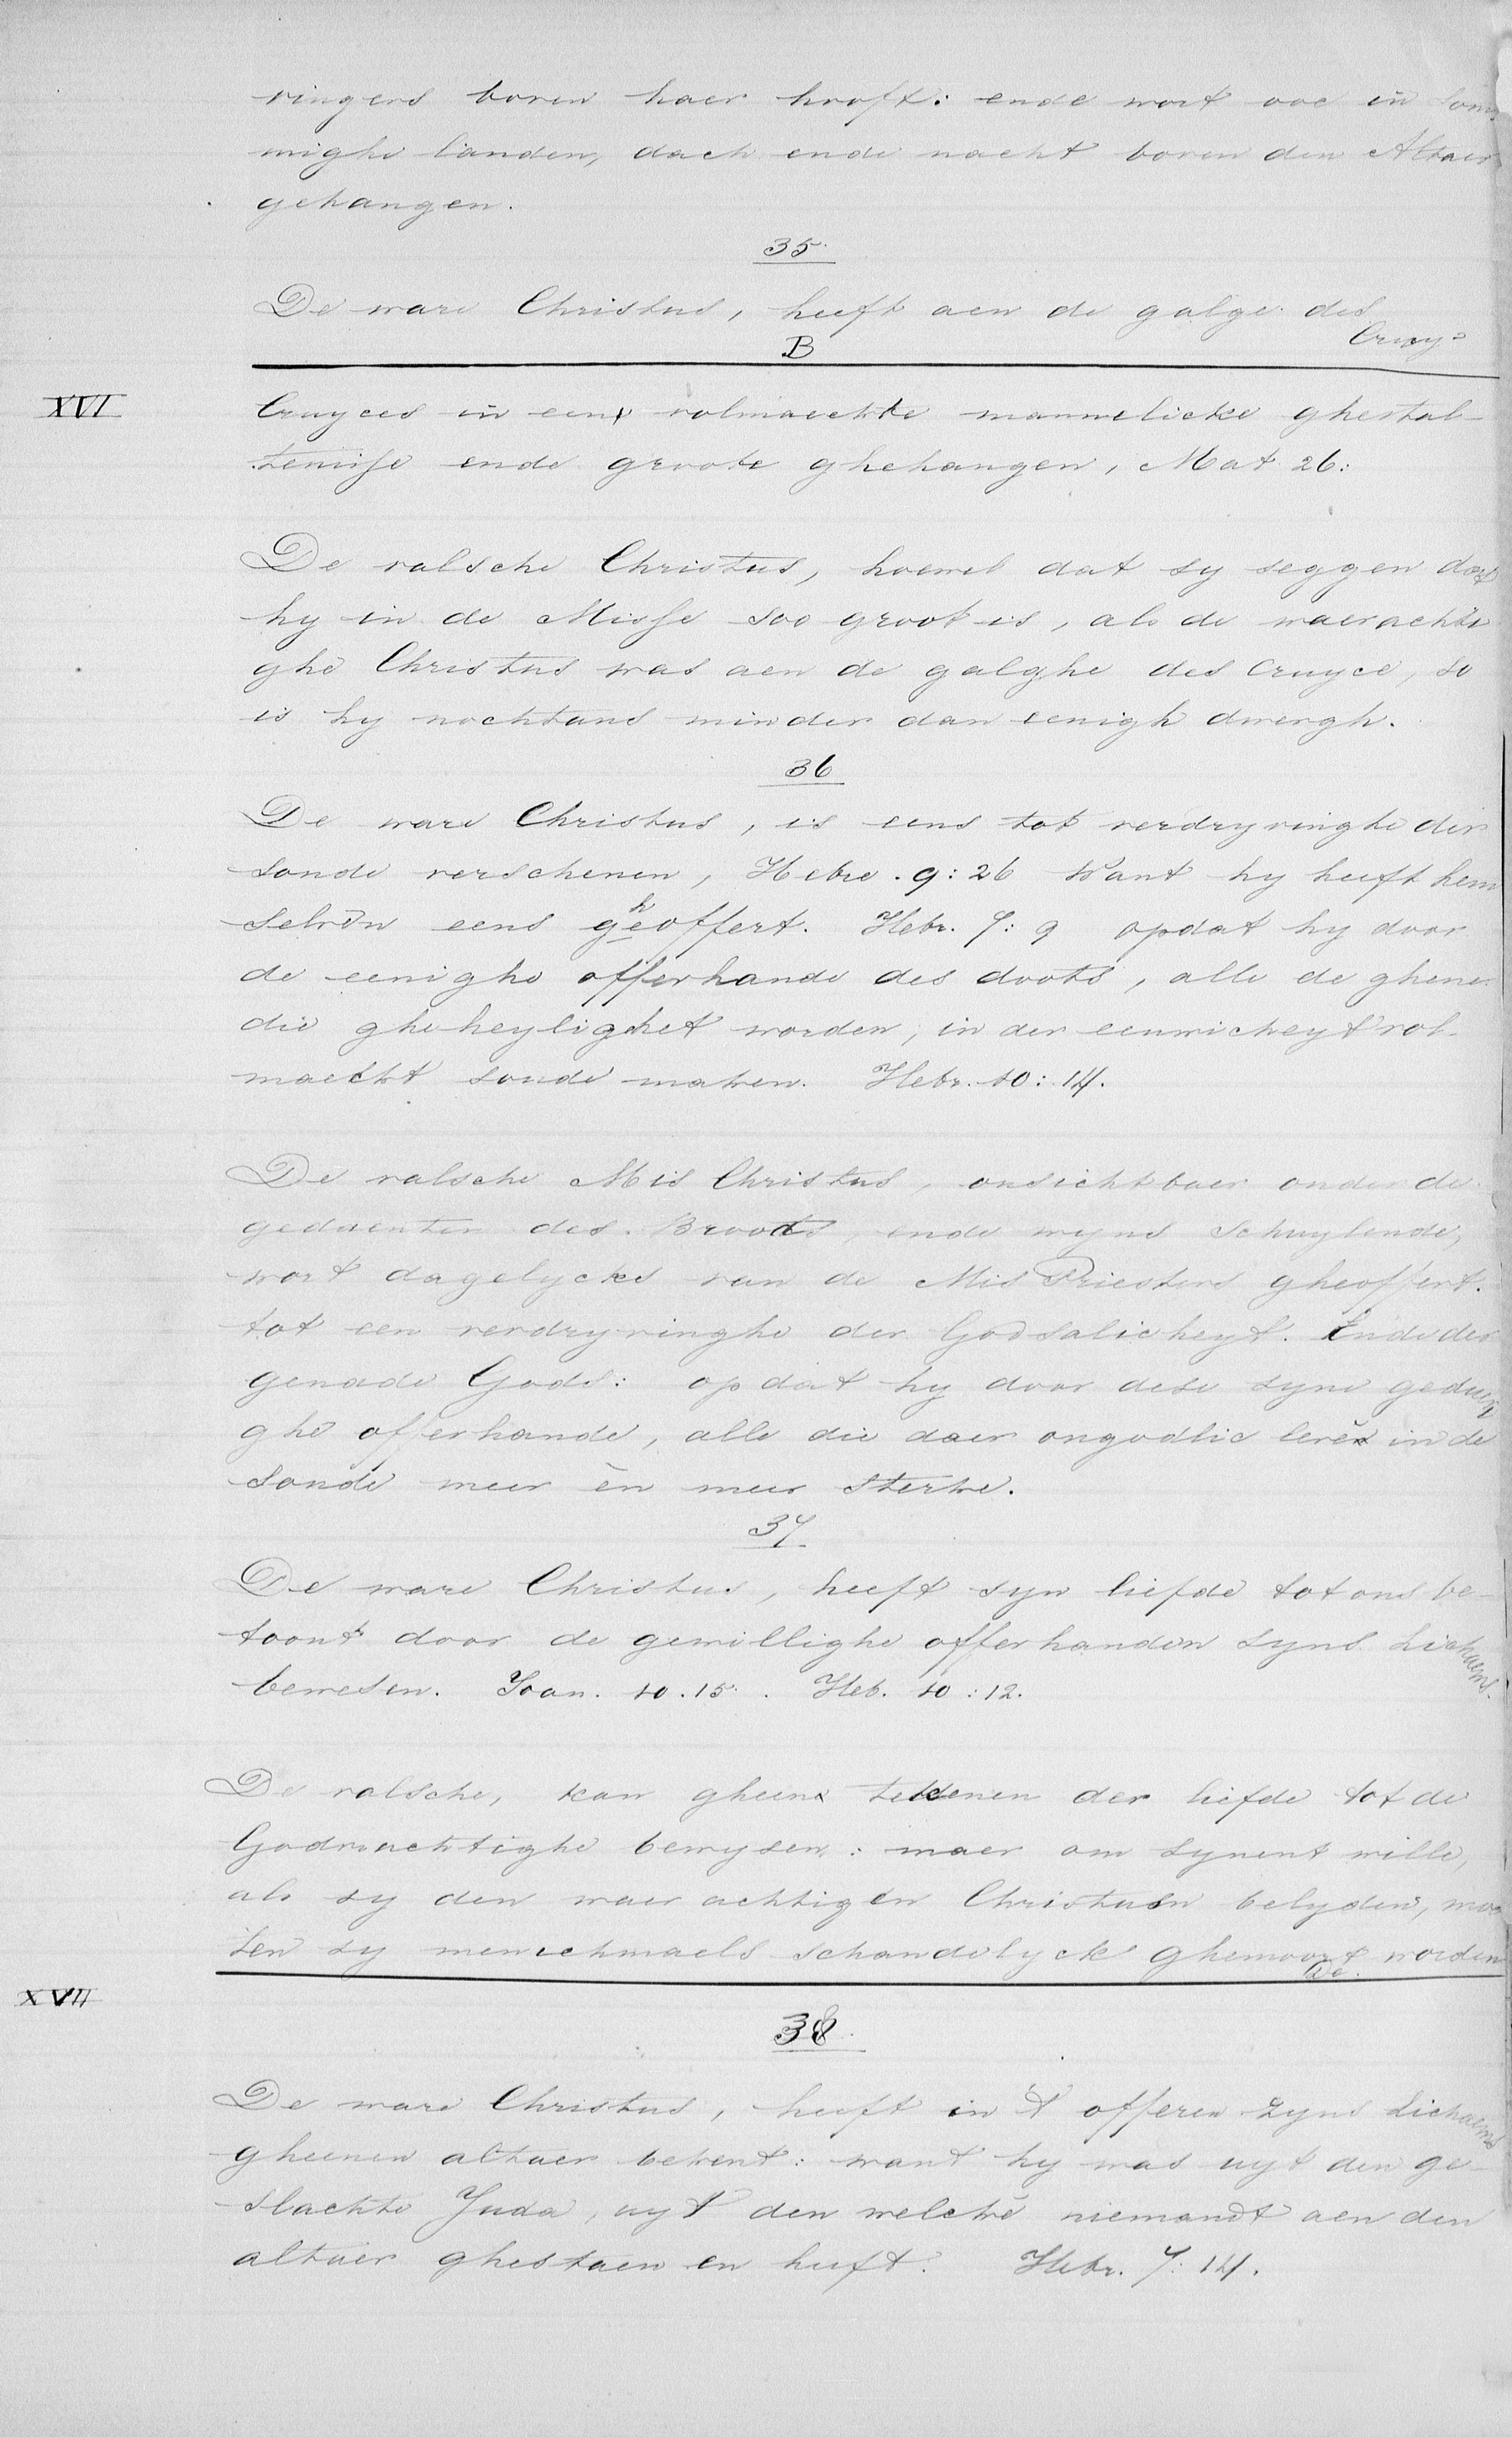 vingers boven haer hooft: ende wort ooc in som
mighe landen, dach ende nacht boven den Altaer
gehangen.
35.
De ware Christus, heeft aen de galge des
B Cruy=
XVI Cruyces in een volmaeckte mannelicke ghestal-
tenisse ende groote ghehangen, Mat 26:
De valsche Christus, hoewel dat sy seggen dat
hy in de Misse soo groot is, als de waerachti
ghe Christus was aen de galghe des Cruyce, so
is hy nochtans minder dan eenigh dwergh.
36
De ware Christus, is eens tot verdryvinghe der
sonde verschenen, Hebre. 9: 26 Want hy heeft hem
selven eens gheoffert. Hebr. 7: 9 opdat hy door
de eenighe offerhande des doots, alle de ghene
die gheheylighet worden, in der eeuwicheyt vol-
maeckt soude maken. Hebr. 10: 14.
De valsche Mis Christus, onsichtbaer onder de
gedaenten des Broots, ende wyns schuylende,
wort dagelycks van de Mis Priesters gheoffert.
tot een verdryvinghe der Godsalicheyt. Ende der
genade Gods: op dat hy door dese syne gedueri
ghe offerhande, alle die daer ongodlic levē in de
sonde meer en meer sterke.
37
De ware Christus, heeft syn liefde tot ons be-
toont door de gewillighe offerhanden syns lichaems.
bewesen. Joan. 10. 15. Heb. 10: 12.
De valsche, kan gheen tekenen der liefde tot de
Godvruchtighe bewysen: maer om synent wille,
als sy den waerachtigen Christum belyden, moe
ten sy menichmaels schandelyck ghemoort worden
De.
XVII
38.
De ware Christus, heeft in 't offeren zyns Lichaems
gheenen altaer bekent: want hy was uyt den ge-
slachte Juda, uyt den welckē niemandt aen den
altaer ghestaen en heeft. Hebr. 7: 14.